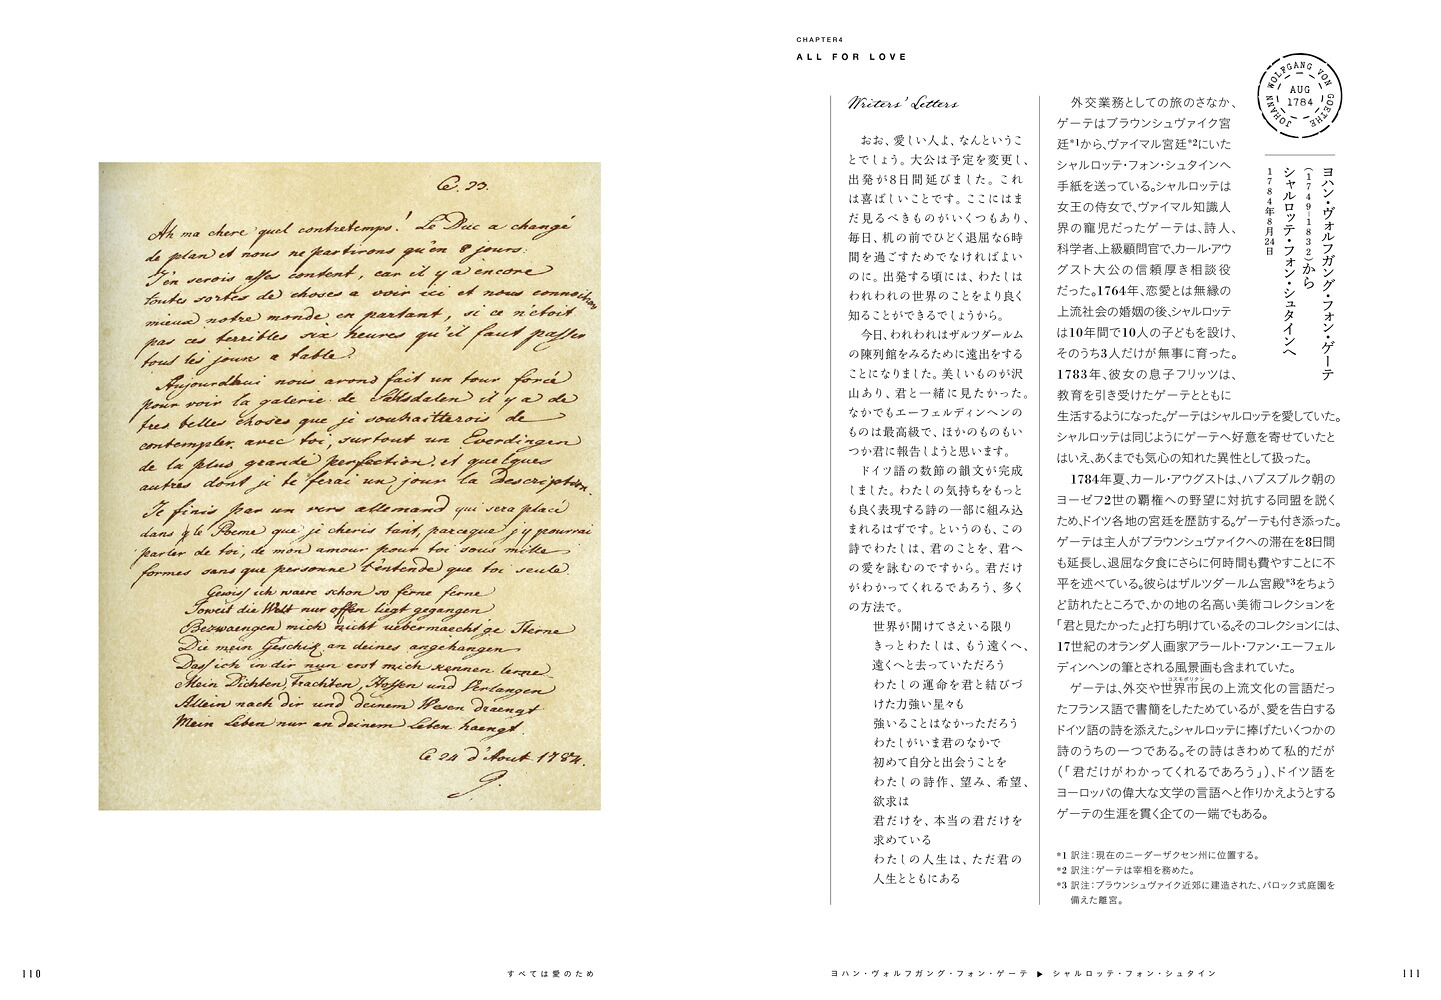 Ce. 23.
Ah ma chere quel contretemps! Le Duc a changé
de plan et nous ne partirons qu'en 8 jours.
J'en serois assés content, car il y a encore
toutes sortes de choses a voir ici et nous connoitrons
mieux notre monde en partant, si ce n'etoit
pas ces terribles six heures qu'il faut passer
tous les jours a table.
Aujourdhui nous avons fait un tour forcé
pour voir la galerie de Salsdalen il y a de
tres belles choses que je souhaitterois de
contempler avec toi, surtout un Everdingen
de la plus grande perfection, et quelques
autres dont je te ferai un jour la Description.
Je finis par un vers allemand qui sera placé
dans le Poeme que je cheris tant, parceque j'y pourrai
parler de toi, de mon amour pour toi sous mille
formes sans que personne l'entende que toi seule.
Gewiss ich waere schon so ferne ferne
Soweit die Welt nur offen liegt gegangen
Bezwaengen mich nicht uebermaechtge Sterne
Die mein Geschick an deines angehangen
Dass ich in dir nun erst mich kennen lerne
Mein Dichten, Trachten, Hoffen und Verlangen
Allein nach dir und deinem Wesen draengt
Mein Leben nur an deinem Leben haengt.
Ce 24 d'Aout 1784.
G.
110
すべては愛のため
CHAPTER4
ALL FOR LOVE
JOHANN WOLFGANG VON GOETHE
AUG
1784
ヨハン・ヴォルフガング・フォン・ゲーテ
(1749–1832)から
シャルロッテ・フォン・シュタインへ
1784年8月24日
Writers' Letters
おお、愛しい人よ、なんというこ
とでしょう。大公は予定を変更し、
出発が8日間延びました。これ
は喜ばしいことです。ここにはま
だ見るべきものがいくつもあり、
毎日、机の前でひどく退屈な6時
間を過ごすためでなければよい
のに。出発する頃には、わたしは
われわれの世界のことをより良く
知ることができるでしょうから。
今日、われわれはザルツダールム
の陳列館をみるために遠出をする
ことになりました。美しいものが沢
山あり、君と一緒に見たかった。
なかでもエーフェルディンヘンの
ものは最高級で、ほかのものもい
つか君に報告しようと思います。
ドイツ語の数節の韻文が完成
しました。わたしの気持ちをもっと
も良く表現する詩の一部に組み込
まれるはずです。というのも、この
詩でわたしは、君のことを、君へ
の愛を詠むのですから。君だけ
がわかってくれるであろう、多く
の方法で。
世界が開けてさえいる限り
きっとわたしは、もう遠くへ、
遠くへと去っていただろう
わたしの運命を君と結びづ
けた力強い星々も
強いることはなかっただろう
わたしがいま君のなかで
初めて自分と出会うことを
わたしの詩作、望み、希望、
欲求は
君だけを、本当の君だけを
求めている
わたしの人生は、ただ君の
人生とともにある
外交業務としての旅のさなか、
ゲーテはブラウンシュヴァイク宮
廷*1から、ヴァイマル宮廷*2にいた
シャルロッテ・フォン・シュタインへ
手紙を送っている。シャルロッテは
女王の侍女で、ヴァイマル知識人
界の寵児だったゲーテは、詩人、
科学者、上級顧問官で、カール・アウ
グスト大公の信頼厚き相談役
だった。1764年、恋愛とは無縁の
上流社会の婚姻の後、シャルロッテ
は10年間で10人の子どもを設け、
そのうち3人だけが無事に育った。
1783年、彼女の息子フリッツは、
教育を引き受けたゲーテとともに
生活するようになった。ゲーテはシャルロッテを愛していた。
シャルロッテは同じようにゲーテへ好意を寄せていたと
はいえ、あくまでも気心の知れた異性として扱った。
1784年夏、カール・アウグストは、ハプスブルク朝の
ヨーゼフ2世の覇権への野望に対抗する同盟を説く
ため、ドイツ各地の宮廷を歴訪する。ゲーテも付き添った。
ゲーテは主人がブラウンシュヴァイクへの滞在を8日間
も延長し、退屈な夕食にさらに何時間も費やすことに不
平を述べている。彼らはザルツダールム宮殿*3をちょう
ど訪れたところで、かの地の名高い美術コレクションを
「君と見たかった」と打ち明けている。そのコレクションには、
17世紀のオランダ人画家アラールト・ファン・エーフェル
ディンヘンの筆とされる風景画も含まれていた。
ゲーテは、外交や世界市民コスモポリタンの上流文化の言語だっ
たフランス語で書簡をしたためているが、愛を告白する
ドイツ語の詩を添えた。シャルロッテに捧げたいくつかの
詩のうちの一つである。その詩はきわめて私的だが
(「君だけがわかってくれるであろう」)、ドイツ語を
ヨーロッパの偉大な文学の言語へと作りかえようとする
ゲーテの生涯を貫く企ての一端でもある。
*1 訳注：現在のニーダーザクセン州に位置する。
*2 訳注：ゲーテは宰相を務めた。
*3 訳注：ブラウンシュヴァイク近郊に建造された、バロック式庭園を
備えた離宮。
ヨハン・ヴォルフガング・フォン・ゲーテ ▶ シャルロッテ・フォン・シュタイン
111